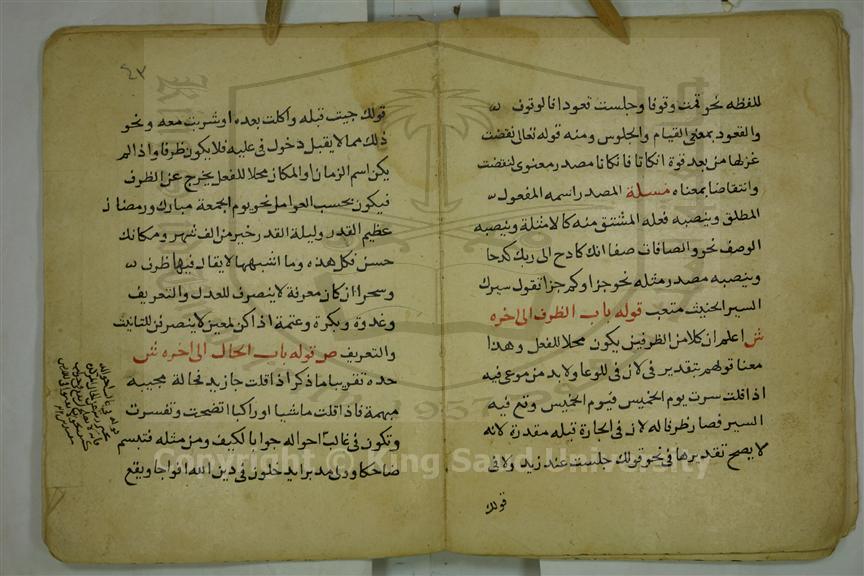 للفظه نحو قمت وقوفا وجلست قعودا فالوقوف
والقعود بمعنى القيام والجلوس ومنه قوله تعالى نقضت
غزلها من بعد قوة انكاثا فانكاثا مصدر معنوى لنقضت
وانتقاضا بمعناه مسلة المصدر اسمه المفعول
المطلق وينصبه فعله المشتق منه كالامثلة وينصبه
الوصف نحو والصافات صفا انك كادح الى ربك كدحا
وينصبه مصدر مثله نحو جزاوكم جزا تقول سيرك
السير الحثيث متعب قوله باب الظرف الى اخره
ش اعلم ان كلا من الظرفين يكون محلا للفعل وهذا
معنا قولهم بتقدير فى لان فى للوعا ولابد من موعى فيه
اذا قلت سرت يوم الخميس فيوم الخميس وقع فيه
السير فصار ظرفا له لان فى الجارة قبله مقدرة لانه
لا يصح تقديرها فى نحو قولك جلست عند زيد ولا فى
قولك
٤٣
قولك جيت قبله واكلت بعده اوشربت معه ونحو
ذلك مما لا يقبل دخول فى عليه فلا يكون ظرفا واذا لم
يكن اسم الزمان او المكان محلا للفعل يخرج عن الظرف
فيكون بحسب العوامل نحو يوم الجمعة مبارك ورمضان
عظيم القدر وليلة القدر خير من الف شهر ومكانك
حسن فكل هذه وما اشبهها لا يقال فيها ظرف
وسحر اان كان معرفة لا ينصرف للعدل والتعريف
وغدوة وبكرة وعتمة اذا كن لمعين لا ينصرفن للتانيث
والتعريف ص قوله باب الحال الى اخره ش
حده تقريبا ما ذكر اذا قلت جا زيد فحالة مجيه
مبهمة فاذا قلت ماشيا او راكبا اتضحت وتفسرت
وتكون فى غالب احواله جوابا لكيف ومن مثله فتبسم
ضاحكا ولى مدبرا يدخلون فى دين الله افواجا ويقع
Copyright © King Saud University
1957